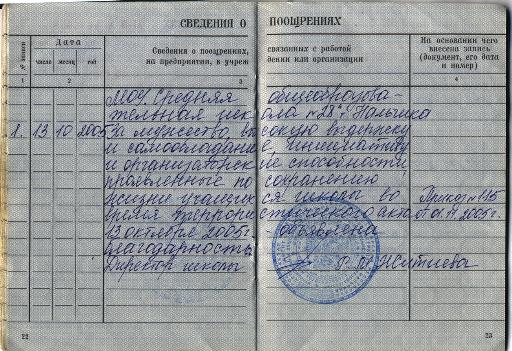 СВЕДЕНИЯ О ПООЩРЕНИЯХ
№ записи
Дата
число месяц год
Сведения о поощрениях, связанных с работой
на предприятии, в учреждении или организации
На основании чего
внесена запись
(документ, его дата
и номер)
1 2 3 4
МОУ Средняя общеобразова-
тельная школа №28 г. Нальчика
1. 13 10 2005 За мужество, высокую выдержку
и самообладание, инициативу
и организаторские способности
проявленные по сохранению
жизни учащихся школы во
время террористического акта Приказ №115
13 октября 2005г. объявлена от 01.11.2005г.
благодарность
Директор школы
22 23